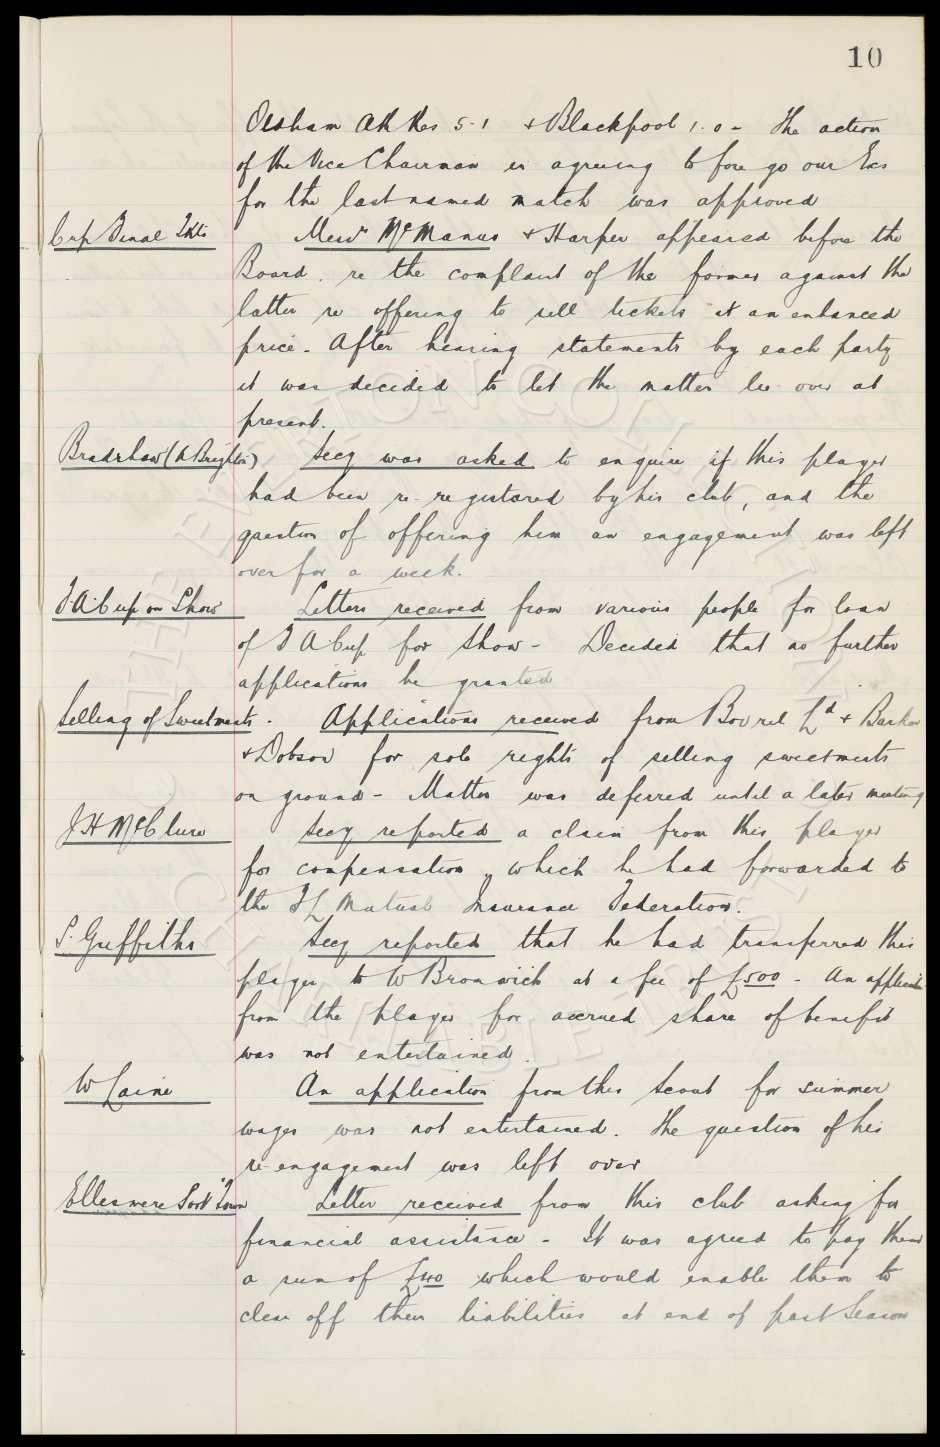 10
Oldham Ath Res 5-1 & Blackpool 1.0 - The action
of the Vice Chairman in agreeing to fore go our Exs
for the last named match was approved
Cup Final Tkts
Messrs McManus & Harper appeared before the
Board. re the complaint of the former against the
latter re offering to sell tickets at an enhanced
price. After hearing statements by each party
it was decided to let the matter lie over at
present.
Bradshaw (N Brighton)
Secy was asked to enquire if this player
had been re-registered by his club, and the
question of offering him an engagement was left
over for a week.
F A Cup on Show
Letters received from various people for loan
of F A Cup for show - Decided that no further
applications be granted
Selling of Sweetmeats.
Applications received from Bovril Ld & Barker
& Dobson for sole rights of selling sweetmeats
on ground - Matter was deferred until a later meeting
J H McClure
Secy reported a claim from this player
for compensation, which he had forwarded to
the F L Mutual Insurance Federation.
S. Griffiths
Secy reported that he had transferred this
player to W Bromwich at a fee of £500 - An applicatn
from the player for accrued share of benefit
was not entertained.
W Laine
An application from this Scout for summer
wages was not entertained. The question of his
re-engagement was left over
Ellesmere Port Town
Letter received from this club asking for
financial assistance - It was agreed to pay them
a sum of £40 which would enable them to
clear off their liabilities at end of past Season